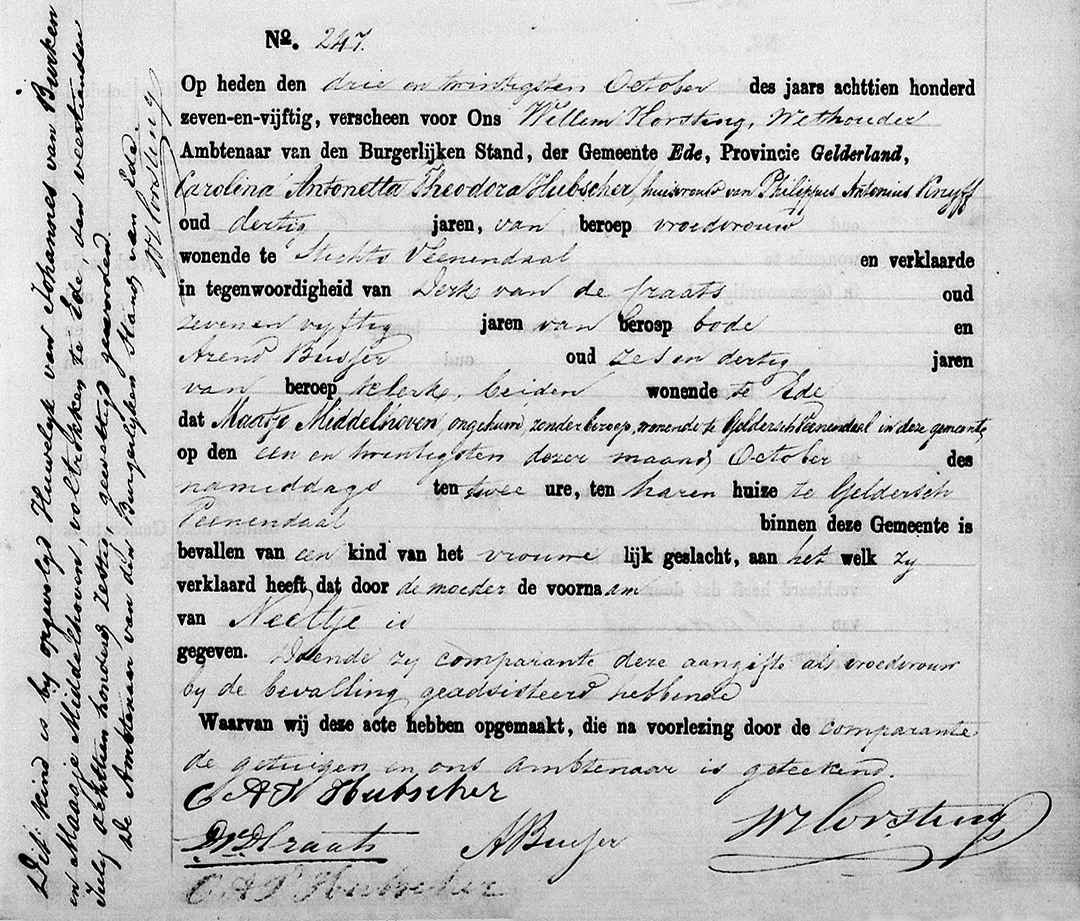 No. 247.
Op heden den drie en twintigsten October des jaars achttien honderd
zeven-en-vijftig, verscheen voor Ons Willem Horsting, Wethouder
Ambtenaar van den Burgerlijken Stand, der Gemeente Ede, Provincie Gelderland,
Carolina Antonetta Theodora Hubscher, huisvrouw van Philippus Antonius Knyff
oud dertig jaren, van beroep vroedvrouw
wonende te Stichts Veenendaal en verklaarde
in tegenwoordigheid van Derk van de Graats oud
zeven en vyftig jaren van beroep bode en
Arend Buijser oud zes en dertig jaren
van beroep klerk, beiden wonende te Ede
dat Maatje Middelhoven, ongehuwd, zonder beroep, wonende te Geldersch Veenendaal in deze gemeente
op den een en twintigsten dezer maand October des
namiddags ten twee ure, ten haren huize te Geldersch
Veenendaal binnen deze Gemeente is
bevallen van een kind van het vrouwe lijk geslacht, aan het welk zy
verklaard heeft dat door de moeder de voornaam
van Neeltje is
gegeven. Doende zy comparante deze aangifte als vroedvrouw
by de bevalling geadsisteerd hebbende
Waarvan wij deze acte hebben opgemaakt, die na voorlezing door de comparante
de getuigen en ons ambtenaar is geteekend.
C A T Hubscher
DvD Graats A Buijser W Horsting
C A T Hubscher
Dit kind is bij opgevolgd Huwelyk van Johannes van Burken
en Maagje Middelhoven, voltrokken te Ede, den veertienden
July achttien honderd zestig, gewettigd geworden.
De Ambtenaar van den Burgerlijken Stand van Ede
W Horsting